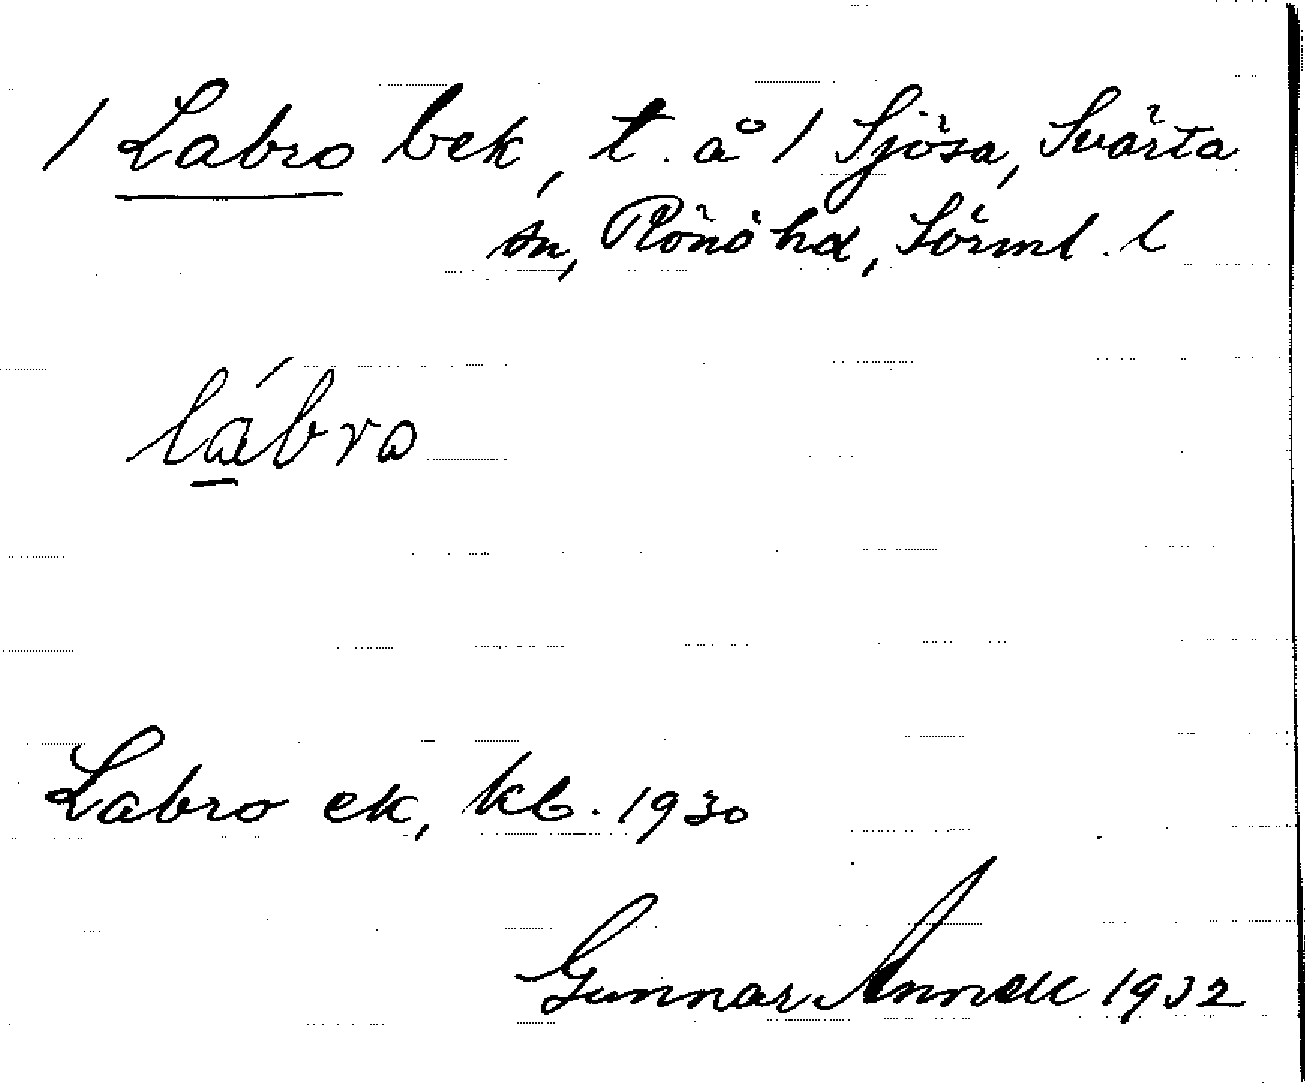 / Labro bek, t. å / Sjösa, Svärta
sn, Rönö hd, Sörml. l
lábro
Labro ek, kb. 1930
Gunnar 1932